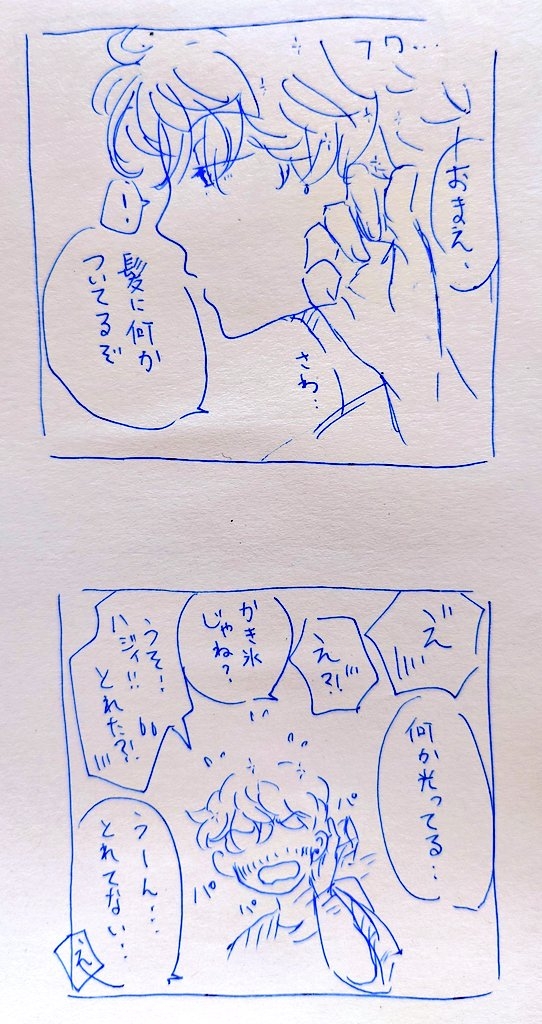 フワ...
おまえ、
！
髪に何か
ついてるぞ
さわ...
え゛
何か光ってる...
え?!
かき氷
じゃね？
うそ！
ハジィ!!
とれた?!
パ
パ
パ
うーん...
とれてない...
え